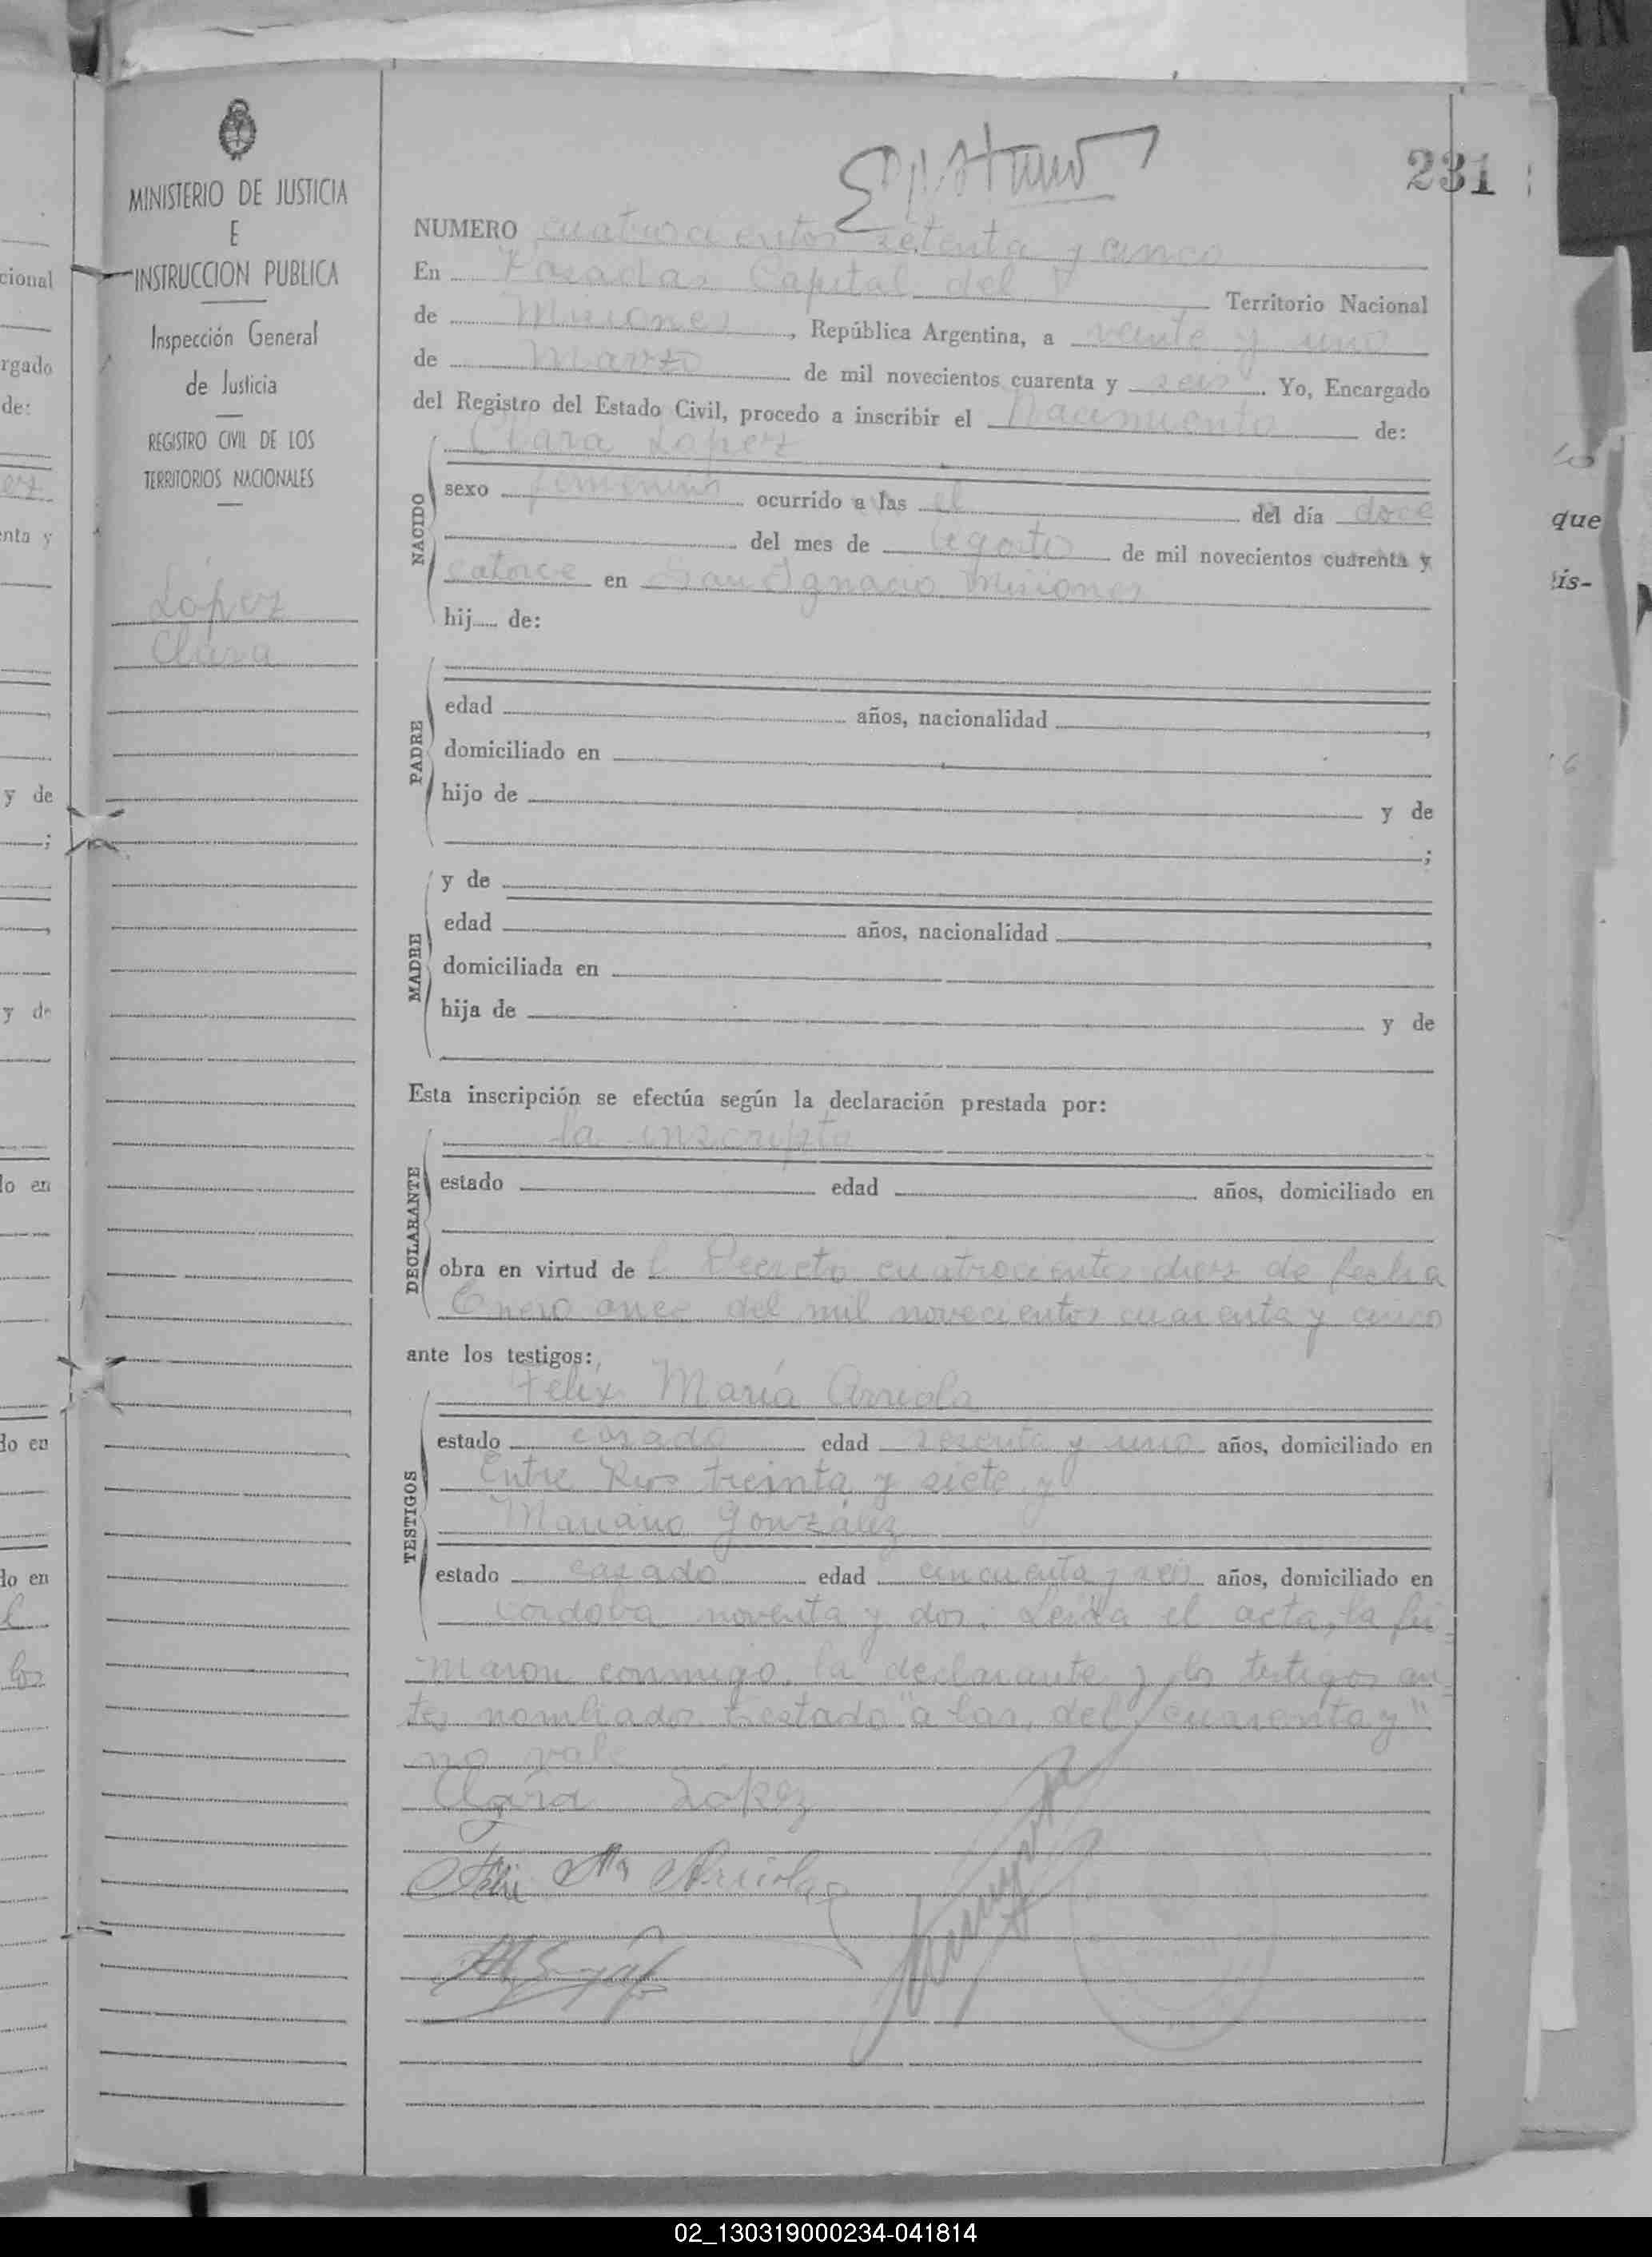 231
MINISTERIO DE JUSTICIA
E
INSTRUCCION PUBLICA
Inspección General
de Justicia
REGISTRO CIVIL DE LOS
TERRITORIOS NACIONALES
López
Clara
NUMERO cuatrocientos setenta y cinco
En Posadas Capital del Territorio Nacional
de Misiones, República Argentina, a veinte y uno
de Marzo de mil novecientos cuarenta y seis. Yo, Encargado
del Registro del Estado Civil, procedo a inscribir el Nacimiento de:
NACIDO
Clara Lopez
sexo femenino ocurrido a las el del día doce
del mes de Agosto de mil novecientos cuarenta y
catorce en San Ignacio Misiones
hij..... de:
PADRE
edad años, nacionalidad ,
domiciliado en
hijo de y de
;
MADRE
y de
edad años, nacionalidad ,
domiciliada en
hija de y de
Esta inscripción se efectúa según la declaración prestada por:
DECLARANTE
la inscripta
estado edad años, domiciliado en
obra en virtud de l Decreto cuatrocientos diez de fecha
Enero once del mil novecientos cuarenta y cinco
ante los testigos:
TESTIGOS
Felix María Arriola
estado casado edad sesenta y uno años, domiciliado en
Entre Rios treinta y siete y
Mariano González
estado casado edad cincuenta y seis años, domiciliado en
Cordoba noventa y dos. Leida el acta, la fir
maron conmigo, la declarante y los testigos an
tes nombrados. Testado "a las, del, cuarenta y"
no vale
Clara Lopez
Felix Ma Arriola
cional
rgado
de:
ez
enta y
y de
;
y de
lo en
lo en
lo en
los
que
is-
02_130319000234-041814